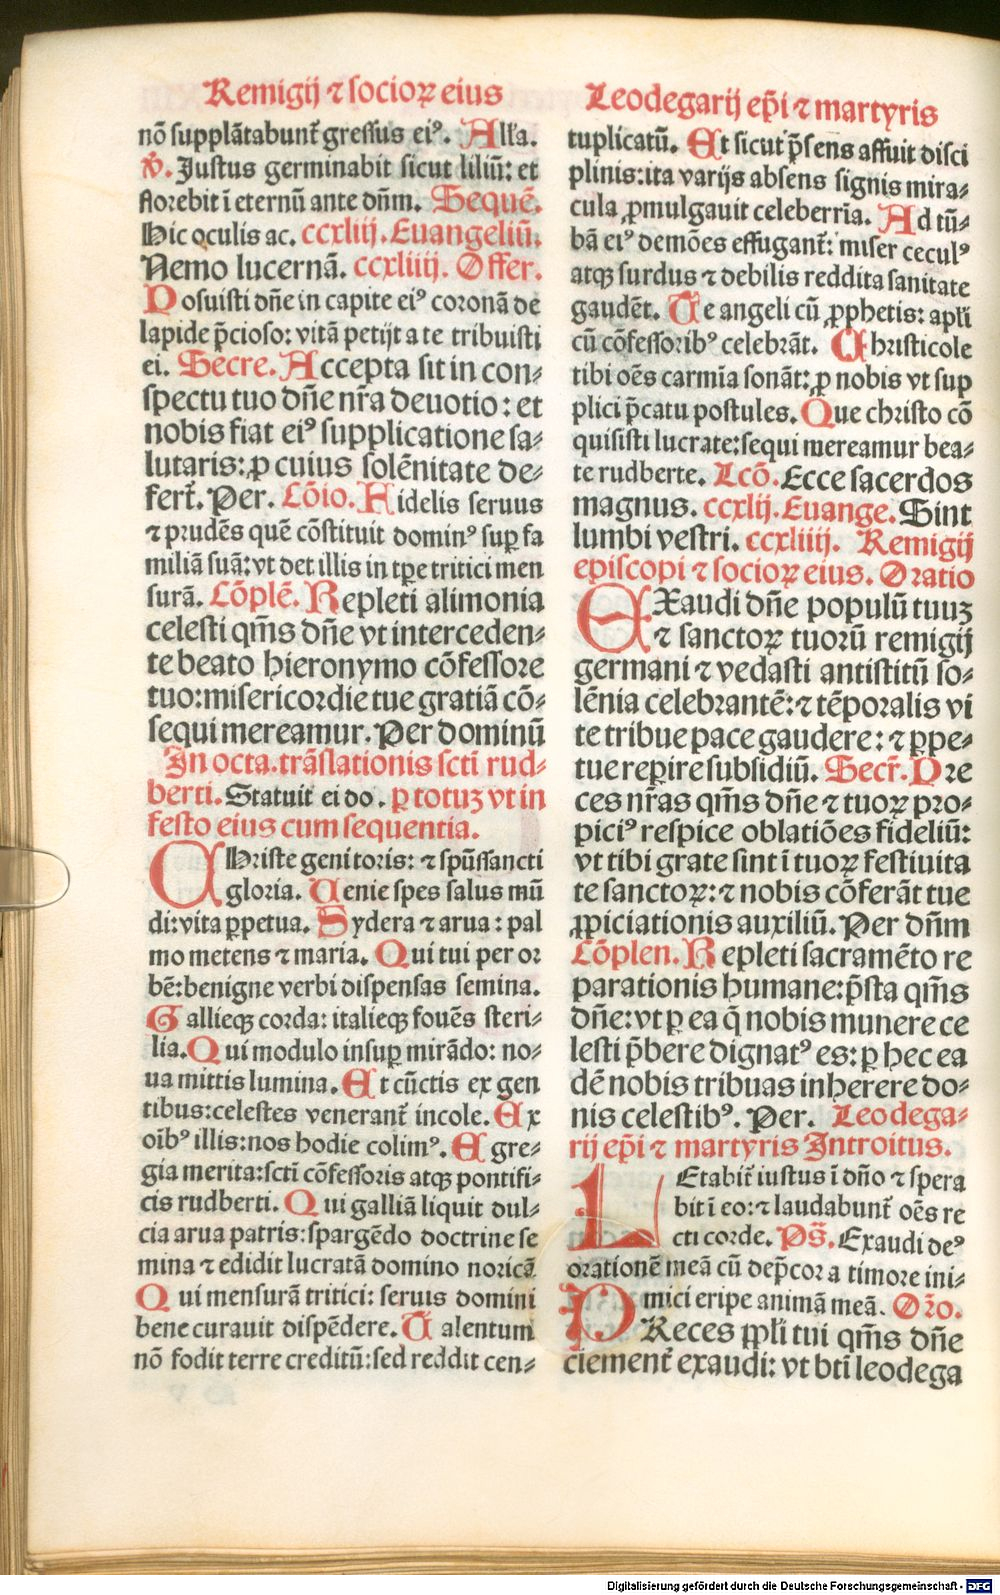 Remigij ⁊ socioꝝ eius
nō supplātabunt᷑ gressus eiꝰ. Alľa.
℣. Justus germinabit sicut liliū: et
florebit ī eternū ante dn̄m. Sequē.
Hic oculis ac. ccxliij. Euangeliū.
Nemo lucernā. ccxliiij. Offer.
Posuisti dn̄e in capite eiꝰ coronā de
lapide p̄cioso: vitā petijt a te tribuisti
ei. Secre. Accepta sit in con⸗
spectu tuo dn̄e nr̄a deuotio: et
nobis fiat eiꝰ supplicatione sa⸗
lutaris: ꝑ cuius solēnitate de⸗
fert᷑. Per. Cōio. Fidelis seruus
⁊ prudēs quē cōstituit dominꝰ suꝑ fa
miliā suā: vt det illis in tꝑe tritici men
surā. Cōplē. Repleti alimonia
celesti qm̄s dn̄e vt interceden⸗
te beato hieronymo cōfessore
tuo: misericordie tue gratiā cō⸗
sequi mereamur. Per dominū
In octa. trāslationis scti rud⸗
berti. Statuit ei do. ꝑ totuꝫ vt in
festo eius cum sequentia.
Christe genitoris: ⁊ spūssancti
gloria. Uenie spes salus mū
di: vita ꝑpetua. Sydera ⁊ arua: pal
mo metens ⁊ maria. Qui tui per or
bē: benigne verbi dispensas semina.
Gallieqꝫ corda: italieqꝫ fouēs steri⸗
lia. Qui modulo insuꝑ mirādo: no⸗
ua mittis lumina. Et cūctis ex gen
tibus: celestes venerant᷑ incole. Ex
oībꝰ illis: nos hodie colimꝰ. Egre⸗
gia merita: scti cōfessoris atqꝫ pontifi⸗
cis rudberti. Qui galliā liquit dul⸗
cia arua patris: spargēdo doctrine se
mina ⁊ edidit lucratā domino noricā
Qui mensurā tritici: seruis domini
bene curauit dispēdere. Talentum
nō fodit terre creditū: sed reddit cen⸗
Leodegarij ep̄i ⁊ martyris
tuplicatū. Et sicut p̄sens affuit disci
plinis: ita varijs absens signis mira⸗
cula ꝓmulgauit celeberria. Ad tū⸗
bā eiꝰ demōes effugant᷑: miser ceculꝰ
atqꝫ surdus ⁊ debilis reddita sanitate
gaudēt. Te angeli cū ꝓphetis: apľi
cū cōfessoribꝰ celebrāt. Christicole
tibi oēs carmīa sonāt: ꝓ nobis vt sup
plici p̄catu postules. Que christo cō
quisisti lucrate: sequi mereamur bea⸗
te rudberte. Lcō. Ecce sacerdos
magnus. ccxlij. Euange. Sint
lumbi vestri. ccxliiij. Remigij
episcopi ⁊ socioꝝ eius. Oratio
EXaudi dn̄e populū tuuꝫ
⁊ sanctoꝝ tuorū remigij
germani ⁊ vedasti antistitū so⸗
lēnia celebrantē: ⁊ tēporalis vi
te tribue pace gaudere: ⁊ ꝑpe⸗
tue reꝑire subsidiū. Secr̄. Pre
ces nr̄as qm̄s dn̄e ⁊ tuoꝝ pro⸗
piciꝰ respice oblatiōes fideliū:
vt tibi grate sint ī tuoꝝ festiuita
te sanctoꝝ: ⁊ nobis cōferāt tue
ꝓpiciationis auxiliū. Per dn̄m
Cōplen. Repleti sacramēto re
parationis humane: p̄sta qm̄s
dn̄e: vt ꝑ ea q̄ nobis munere ce
lesti p̄bere dignatꝰ es: ꝑ hec ea
dē nobis tribuas inherere do⸗
nis celestibꝰ. Per. Leodega⸗
rij ep̄i ⁊ martyris Introitus.
LEtabit᷑ iustus ī dn̄o ⁊ spera
bit ī eo: ⁊ laudabunt᷑ oēs re
cti corde. Ps̄. Exaudi deꝰ
orationē meā cū dep̄cor a timore ini⸗
mici eripe animā meā. Or̄o.
PReces ppľi tui qm̄s dn̄e
clement᷑ exaudi: vt bt̄i leodega
Digitalisierung gefördert durch die Deutsche Forschungsgemeinschaft - DFG